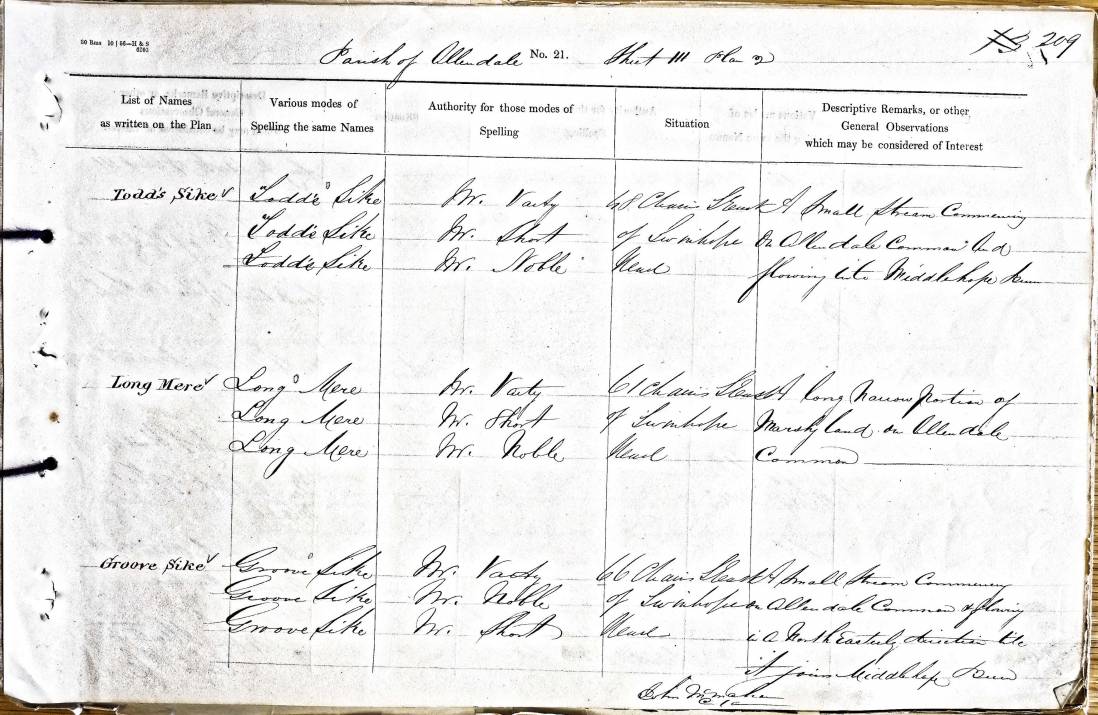 50 Rms 10 | 56—H & S
6201
209
Parish of Allendale No. 21. Sheet 111 Plan 2
List of Names
as written on the Plan
Various modes of
Spelling the same Names
Authority for those modes of
Spelling
Situation
Descriptive Remarks, or other
General Observations
which may be considered of Interest
Todd's Sike Todd's Sike Mr. Varty 68 Chains A Small Stream Commencing
Todd's Sike Mr. Short of Swinhope on Allendale Common And
Todd's Sike Mr. Noble Head flowing into Middlehope Burn
Long Mere Long Mere Mr. Varty 61 Chains A long narrow portion of
Long Mere Mr. Short of Swinhope Marshy land on Allendale
Long Mere Mr. Noble Head Common
Groove Sike Groove Sike Mr. Varty 66 Chains A Small Stream Commencing
Groove Sike Mr. Noble of Swinhope on Allendale Common & flowing
Groove Sike Mr. Short Head in a North Easterly direction till
it joins Middlehope Burn
John